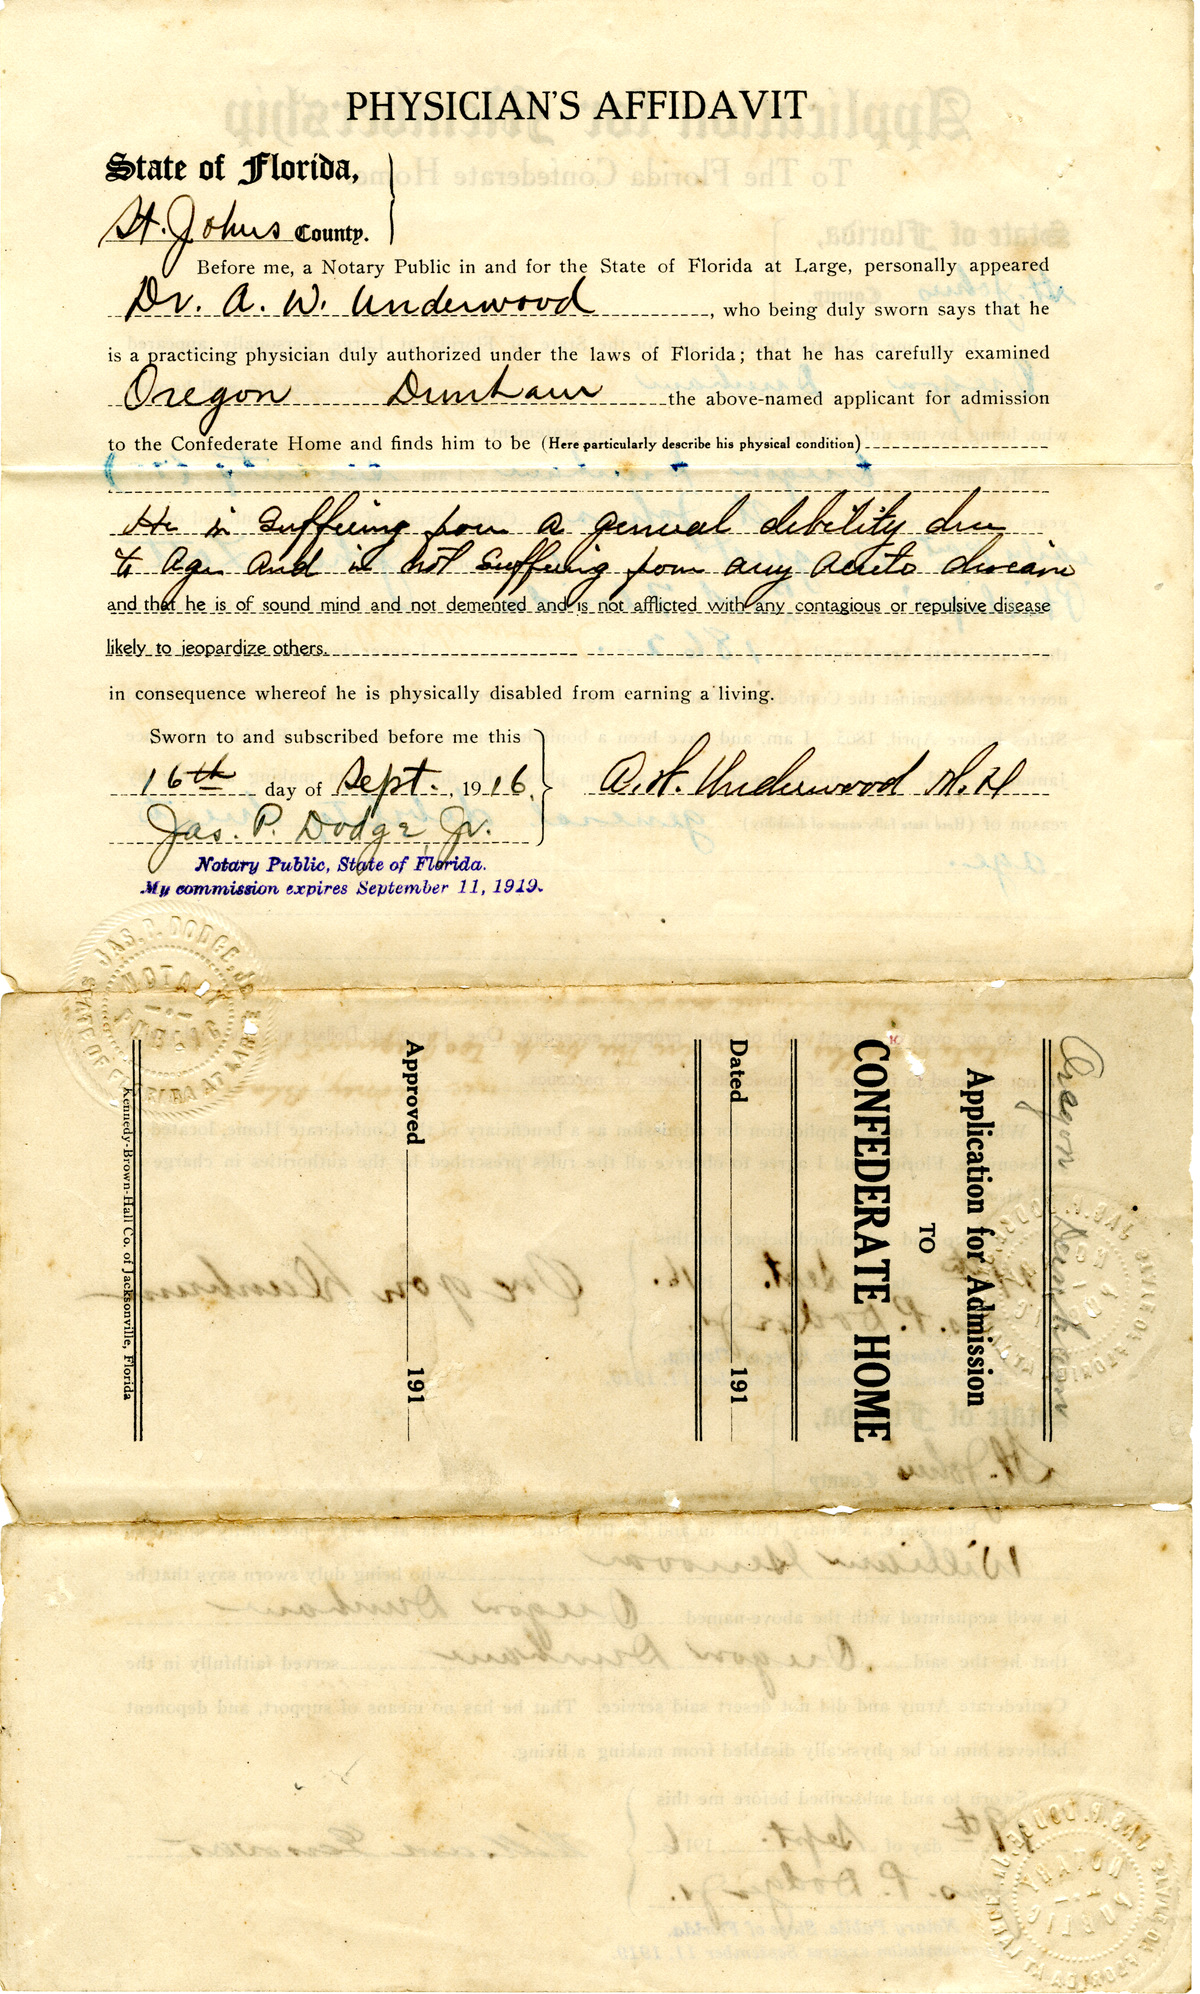 PHYSICIAN'S AFFIDAVIT
State of Florida,
St. Johns County.
Before me, a Notary Public in and for the State of Florida at Large, personally appeared
Dr. A. W. Underwood, who being duly sworn says that he
is a practicing physician duly authorized under the laws of Florida; that he has carefully examined
Oregon Dunham the above-named applicant for admission
to the Confederate Home and finds him to be (Here particularly describe his physical condition)
He is suffering from a general debility due
to age and is not suffering from any acute disease
and that he is of sound mind and not demented and is not afflicted with any contagious or repulsive disease
likely to jeopardize others.
in consequence whereof he is physically disabled from earning a living.
Sworn to and subscribed before me this
16th day of Sept., 1916.
A. W. Underwood M.D
Jas. P. Dodge, Jr.
Notary Public, State of Florida.
My commission expires September 11, 1919.
JAS. P. DODGE, JR.
NOTARY PUBLIC
STATE OF FLORIDA AT LARGE
Oregon Dunham
Application for Admission
TO
CONFEDERATE HOME
Dated 191
Approved 191
Kennedy-Brown-Hall Co. of Jacksonville, Florida